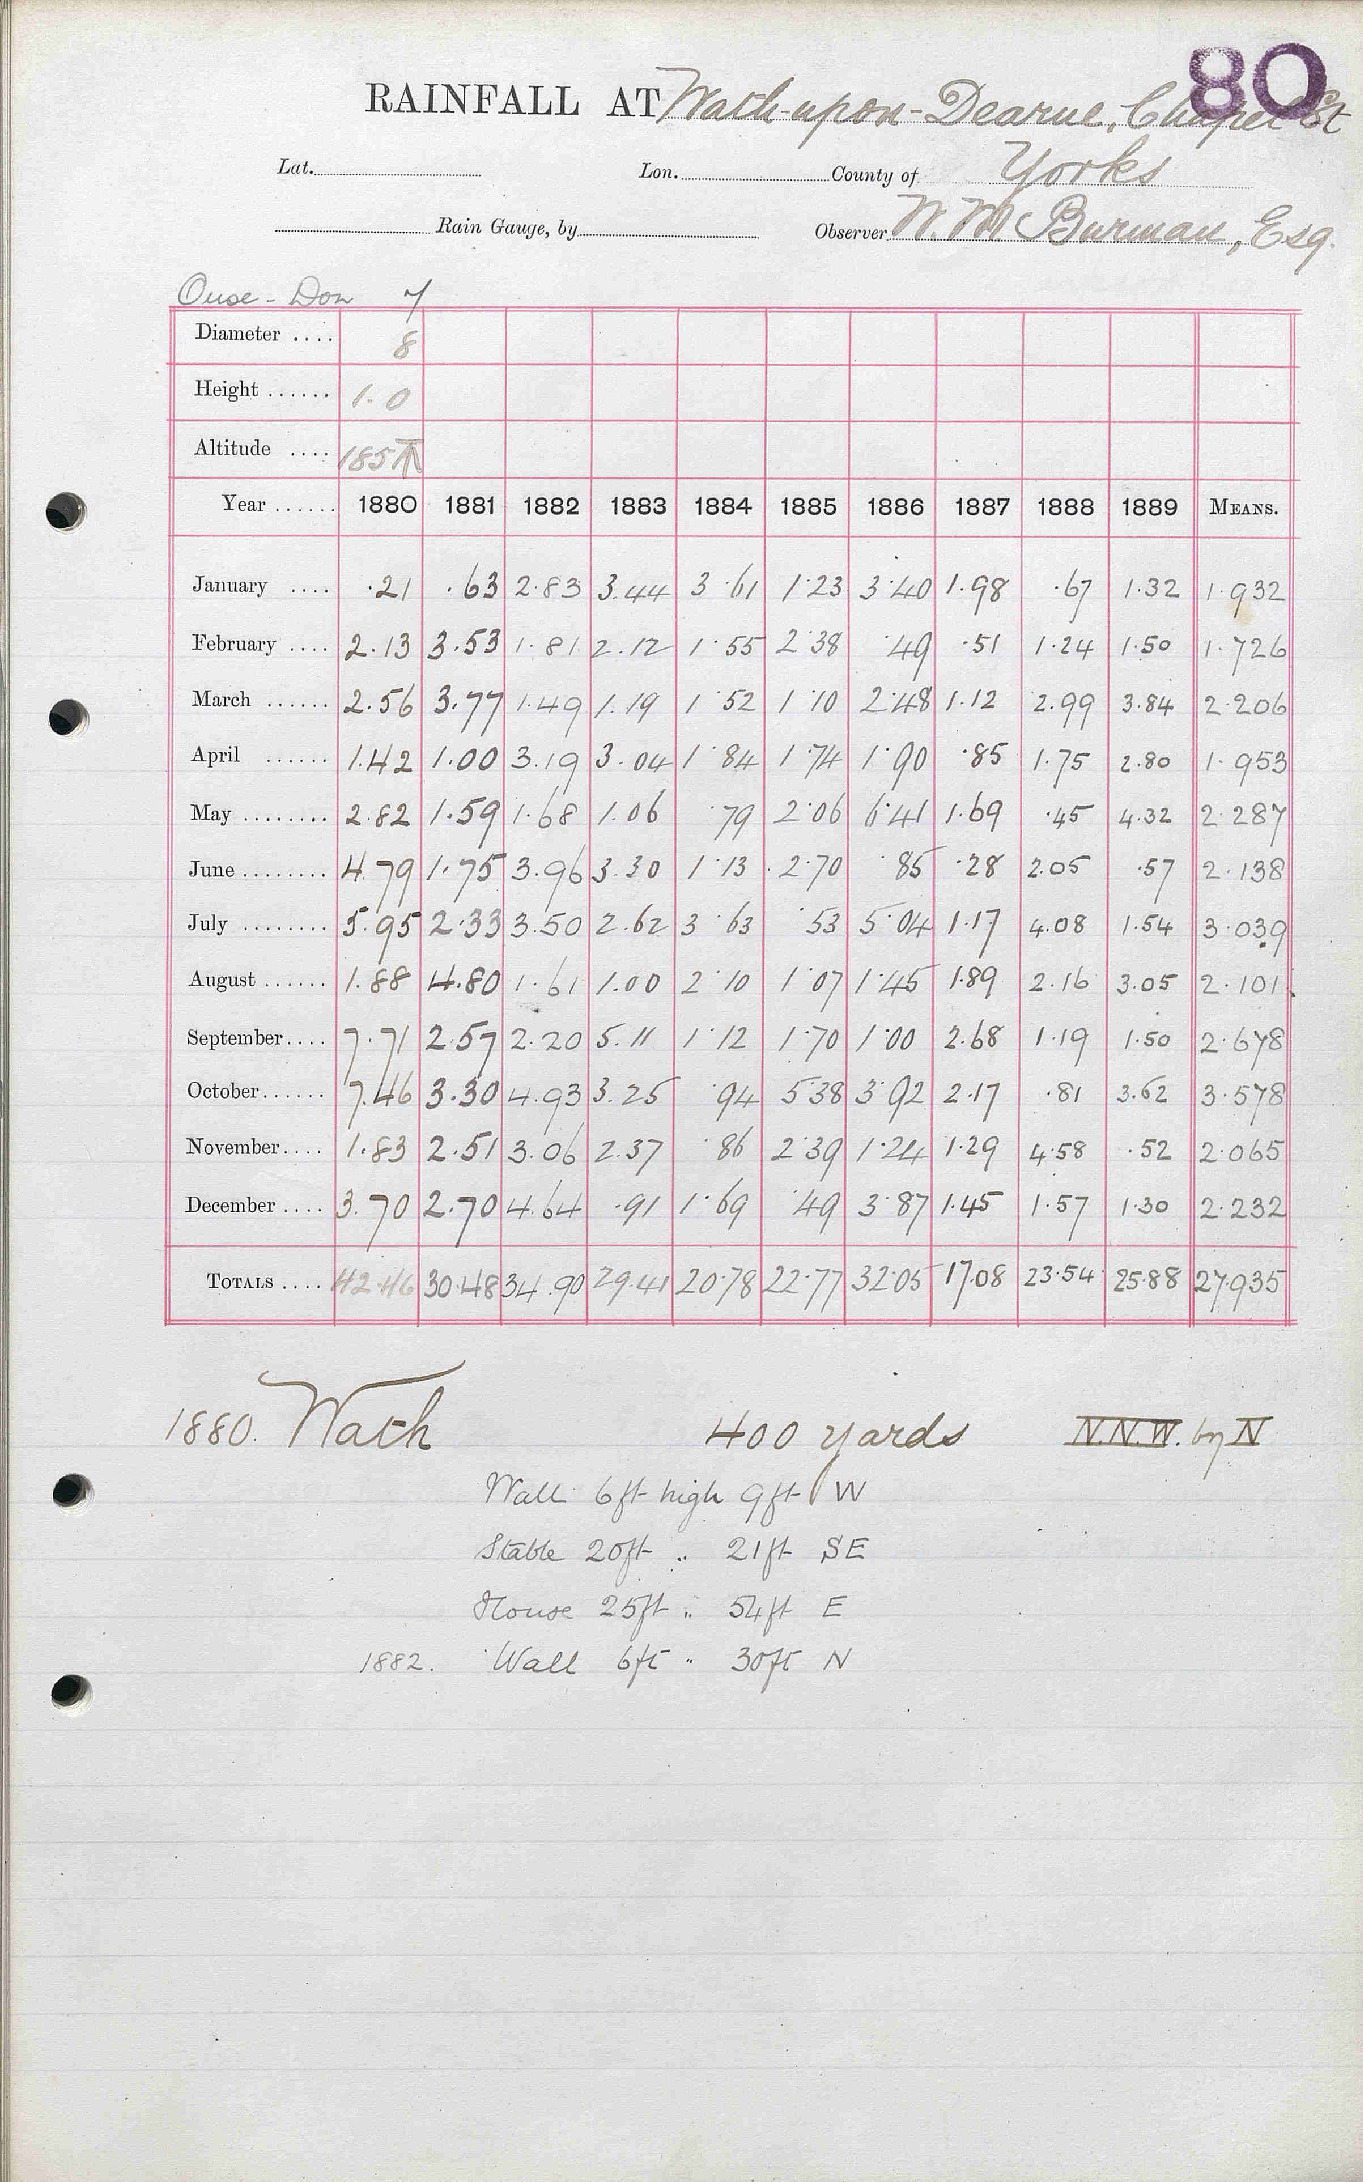 80
RAINFALL AT Wath-upon-Dearne, Chapel St
Lat. Lon. County of Yorks
Rain Gauge, by Observer W. M. Burman, Esq.
Ouse - Don 7
Diameter .... 8
Height ...... 1.0
Altitude .... 185
Year ...... 1880 1881 1882 1883 1884 1885 1886 1887 1888 1889 MEANS.
January .... .21 .63 2.83 3.44 3.61 1.23 3.40 1.98 .67 1.32 1.932
February .... 2.13 3.53 1.81 2.12 1.55 2.38 .49 .51 1.24 1.50 1.726
March ...... 2.56 3.77 1.49 1.19 1.52 1.10 2.48 1.12 2.99 3.84 2.206
April ...... 1.42 1.00 3.19 3.04 1.84 1.74 1.90 .85 1.75 2.80 1.953
May ........ 2.82 1.59 1.68 1.06 .79 2.06 6.41 1.69 .45 4.32 2.287
June ........ 4.79 1.75 3.96 3.30 1.13 2.70 .85 .28 2.05 .57 2.138
July ........ 5.95 2.33 3.50 2.62 3.63 .53 5.04 1.17 4.08 1.54 3.039
August ...... 1.88 4.80 1.61 1.00 2.10 1.07 1.45 1.89 2.16 3.05 2.101
September.... 7.71 2.57 2.20 5.11 1.12 1.70 1.00 2.68 1.19 1.50 2.678
October...... 7.46 3.30 4.93 3.25 .94 5.38 3.92 2.17 .81 3.62 3.578
November.... 1.83 2.51 3.06 2.37 .86 2.39 1.24 1.29 4.58 .52 2.065
December .... 3.70 2.70 4.64 .91 1.69 .49 3.87 1.45 1.57 1.30 2.232
TOTALS .... 42.46 30.48 34.90 29.41 20.78 22.77 32.05 17.08 23.54 25.88 27.935
1880. Wath 400 yards N.N.W. by N
Wall 6ft high 9ft W
Stable 20ft " 21ft SE
House 25ft " 54ft E
1882. Wall 6ft " 30ft N